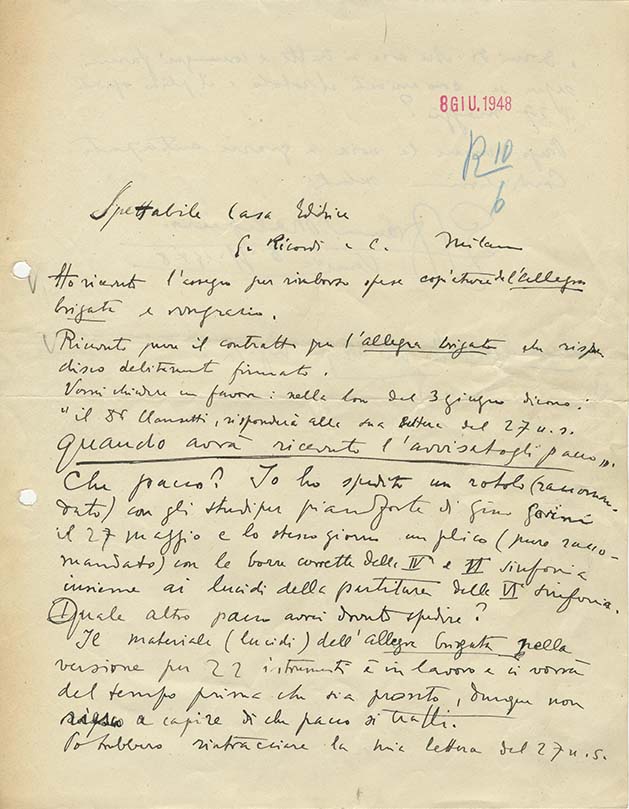 8 GIU. 1948
R 10
6
Spettabile Casa Editrice
G. Ricordi e C. Milano
Ho ricevuto l'assegno per rimborso spese copiature de l'allegra
brigata e ringrazio.
Ricevuto pure il contratto per l'allegra brigata che
debitamente firmato.
Vorrei chiedere un favore: nella loro del 3 giugno dicono:
"il Dr Clausetti, risponderà alla sua lettera del 27 u.s.
quando avrà ricevuto l'avvisatogli pacco".
Che pacco? Io ho spedito un rotolo (raccoman-
dato) con gli studi per pianoforte di Gino Gorini
il 27 maggio e lo stesso giorno un plico (pure racco-
mandato) con le bozze corrette della IV e VI sinfonia
insieme ai lucidi della partitura della VI sinfonia.
Quale altro pacco avrei dovuto spedire?
Il materiale (lucidi) dell'allegra brigata nella
versione per 22 istrumenti è in lavoro e ci vorrà
del tempo prima che sia pronto, dunque non
riesco a capire di che pacco si tratti.
Potrebbero rintracciare la mia lettera del 27 u.s.